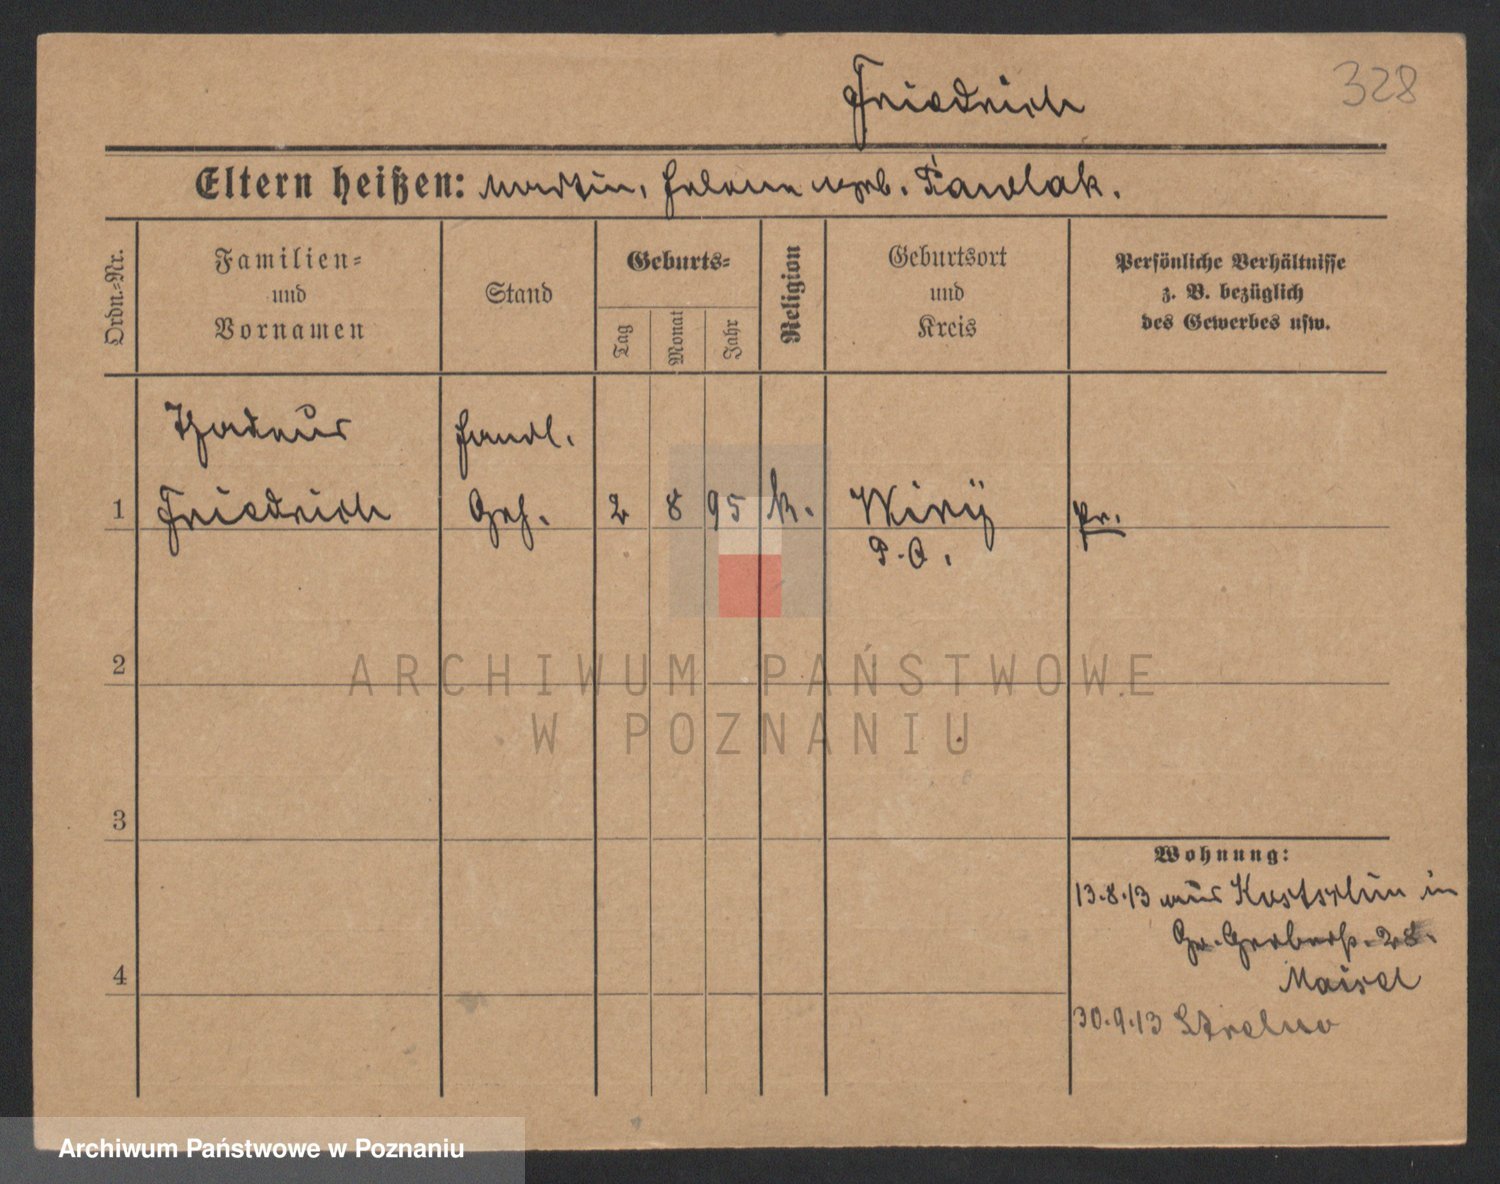 Friedrich
328
Eltern heißen: Martin, Helene geb. Pawlak.
Ordn.-Nr.
Familien-
und
Vornamen
Stand
Geburts-
Tag
Monat
Jahr
Religion
Geburtsort
und
Kreis
Persönliche Verhältnisse
z. B. bezüglich
des Gewerbes usw.
Thadeus Handl.
1 Friedrich Geh. 2 8 95 k. Wiry pr.
P. O.
2
ARCHIWUM PAŃSTWOWE
W POZNANIU
3
Wohnung:
13.8.13 aus Kostschin in
Gr. Gerberstr. 28.
4
Maisel
30.9.13 Strelno
Archiwum Państwowe w Poznaniu